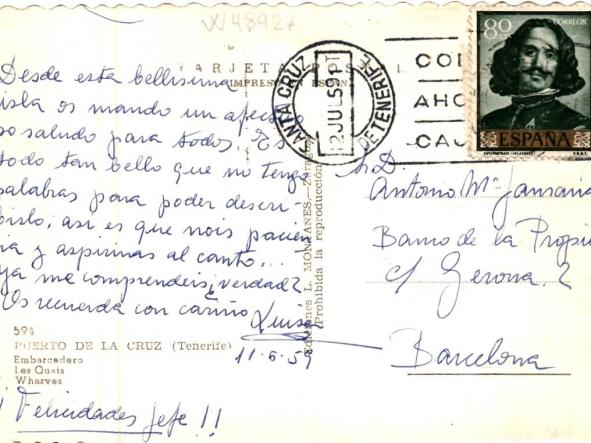 W48927
TARJETA POSTAL
IMPRESO EN ESPAÑA
Desde esta bellísima
isla os mando un afectuo
so saludo para todos. Es
todo tan bello que no tengo
palabras para poder descri-
birlo, así es que nois pacien
cia y aspirinas al canto...
ya me comprendeis, verdad?
Os recuerda con cariño
Luisa
11-6-59
594
PUERTO DE LA CRUZ (Tenerife)
Embarcadero
Les Quais
Wharves
¡Felicidades Jefe!!
Ediciones L. MONTAÑES.-Z
(Prohibida la reproducción)
SANTA CRUZ DE TENERIFE
12 JUL 59
COR
AHO
CAJ
80
CORREOS
ESPAÑA
Sr. D.
Antonio Mª
Banco de la Propie
c/ Gerona, 2
Barcelona